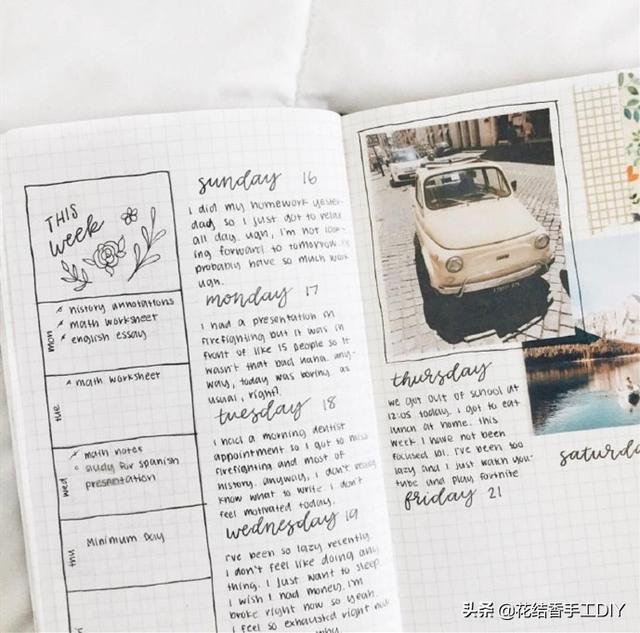 THIS
week
mon
history annotations
math worksheet
english essay
tue
math worksheet
wed
math notes
study for spanish
presentation
thu
Minimum Day
sunday 16
i did my homework yester-
day so i just got to relax
all day. ugh, i'm not look-
ing forward to tomorrow. i'll
probably have so much work
ugh.
monday 17
i had a presentation in
firefighting but it was in
front of like 15 people so it
wasn't that bad haha. any-
way, today was boring as
usual, right?
tuesday 18
i had a morning dentist
appointment so i got to miss
firefighting and most of
history. anyway, i don't really
know what to write i don't
feel motivated today.
wednesday 19
i've been so lazy recently.
i don't feel like doing any
thing. i just want to sleep.
i wish i had money. i'm
broke right now so yeah.
i feel so exhausted right now
why
thursday
we got out of school at
12:05 today. i got to eat
lunch at home. this
week i have not been
focused lol. i've been too
lazy and i just watch you-
tube and play fortnite
friday 21
saturda
头条 @花结香手工DIY